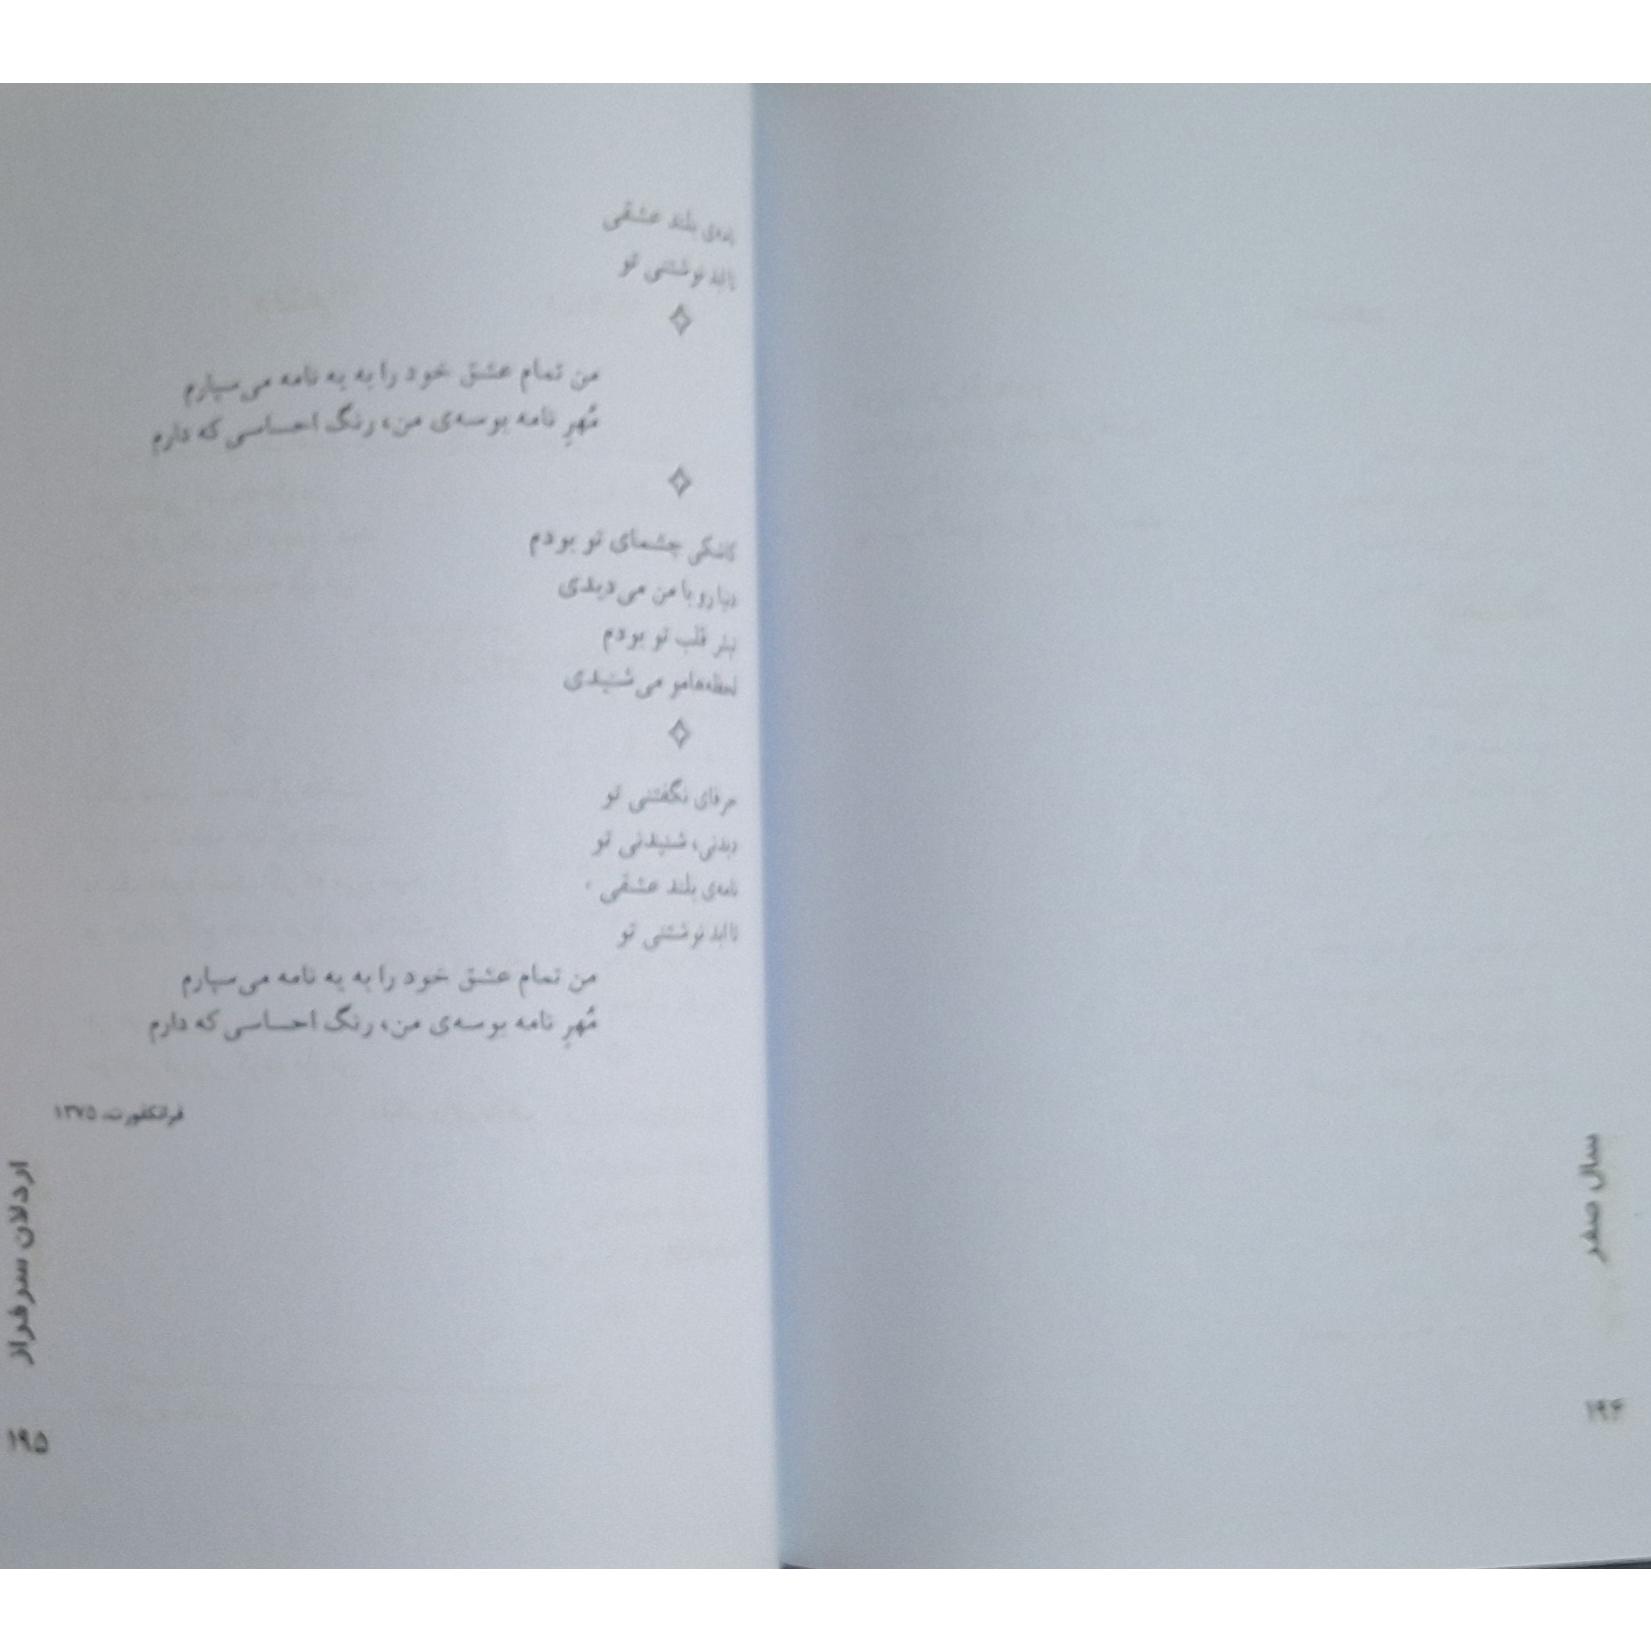 نامه‌ی بلند عشقی
تا ابد نوشتنی تو
من تمام عشق خود را به یه نامه می‌سپارم
مُهرِ نامه بوسه‌ی من، رنگ احساسی که دارم
کاشکی چشمای تو بودم
دنیا رو با من می‌دیدی
تو قلب تو بودم
لحظه‌هامو می‌شنیدی
حرفای نگفتنی تو
دیدنی، شنیدنی تو
نامه‌ی بلند عشقی
تا ابد نوشتنی تو
من تمام عشق خود را به یه نامه می‌سپارم
مُهرِ نامه بوسه‌ی من، رنگ احساسی که دارم
فرانکفورت، ۱۳۷۵
اردلان سرفراز
۱۹۵
سال صفر
۱۹۴